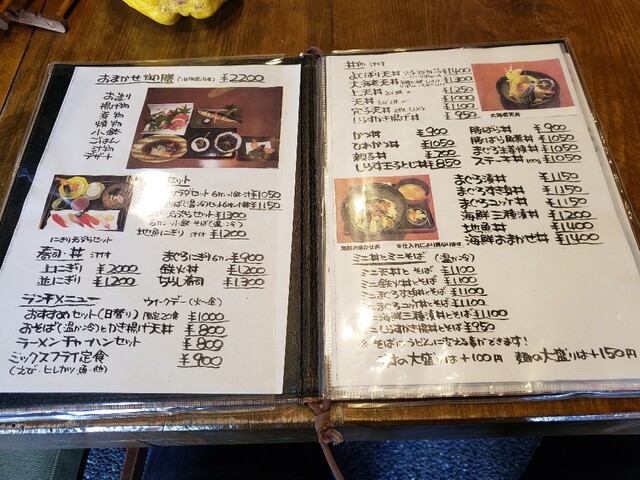 おまかせ御膳 ¥2200
お造り
揚げ物
煮物
焼物
小鉢
ごはん
汁物
デザート
セット
¥1050
¥1150
¥1300
地魚にぎり 汁付 ¥1200
にぎりおぶらセット
寿司・丼 汁付
上にぎり ¥2000
並にぎり ¥1200
まぐろにぎり6カン ¥900
鉄火丼 ¥1200
ちらし寿司 ¥1300
ランチメニュー ウィークデー(火〜金)
おすすめセット(日替り) 限定20食 ¥1000
おそば(温か冷)とかき揚げ天丼 ¥800
ラーメンチャーハンセット ¥800
ミックスフライ定食 ¥900
(えび・ヒレカツ・魚・他)
丼物 汁付
よくばり天丼 ¥1400
大海老天丼 ¥1300
上天丼 ¥1250
天丼 ¥1000
穴子天丼 ¥1100
かき揚げ丼 ¥950
大海老天丼
かつ丼 ¥900
ひれかつ丼 ¥1050
親子丼
しらす玉ろじ丼 ¥850
豚ばら丼 ¥900
豚ばら角煮丼 ¥1050
まぐろ生姜焼丼 ¥1050
ステーキ丼 100g ¥1050
まぐろ漬丼 ¥1150
まぐろすき身丼 ¥1150
まぐろユッケ丼 ¥1150
海鮮三種漬丼 ¥1200
地魚丼 ¥1400
海鮮おまかせ丼 ¥1400
海鮮おまかせ丼 ※仕入れにより異なります
ミニ丼とミニそば (温か冷)
ミニ天丼とそば ¥1100
ミニ鉄火丼とそば ¥1100
ミニまぐろすき身丼とそば ¥1100
ミニまぐろユッケ丼とそば ¥1100
ミニ海鮮三種漬丼とそば ¥1100
ミニしらすかき揚丼とそば ¥950
※そばはうどんに変える事ができます!
丼の大盛りは+100円 麺の大盛りは+150円